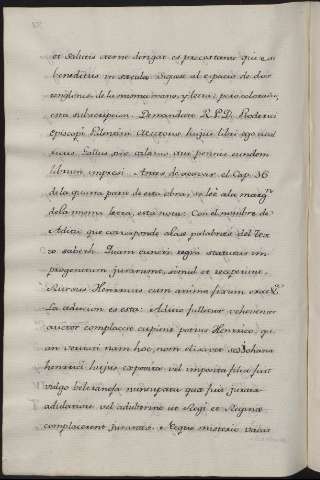 et salutis eterne dirigat es precor tante qui est
benedictus in secula. Sigue al espacio de dos
renglones, de la misma mano, y letra; pero colorada,
esta subscripcion. De mandato R. P. D. Roderici
Episcopi Palentini Auctoris hujus libri ego
Gallus sine calamo aut pennis eundem
librum impresi. Antes de acavar el Cap. 36
de la quarta parte de esta obra, se lee a la margen
de la misma letra, esta nota: Con el nombre de
Aditio que corresponde a las palabras del Tex-
to saberh. Quam cuncti regni status in
progenitum jurarunt, simul et receperunt.
Rursus Henricus cum animo fixum
La adicion es esta: Aditio fallitur vehementer
auctor complacere cupiens potius Henrico, qu-
am veritati nam hoc, nom Johana
henrici hujus exposita vel imposita filia fuit
vulgo beltraneja nuncupata que fuit jurata
adulatorie vel adulterine ut Regi et Regine
complacerent jurantes. Neque misterio vacat